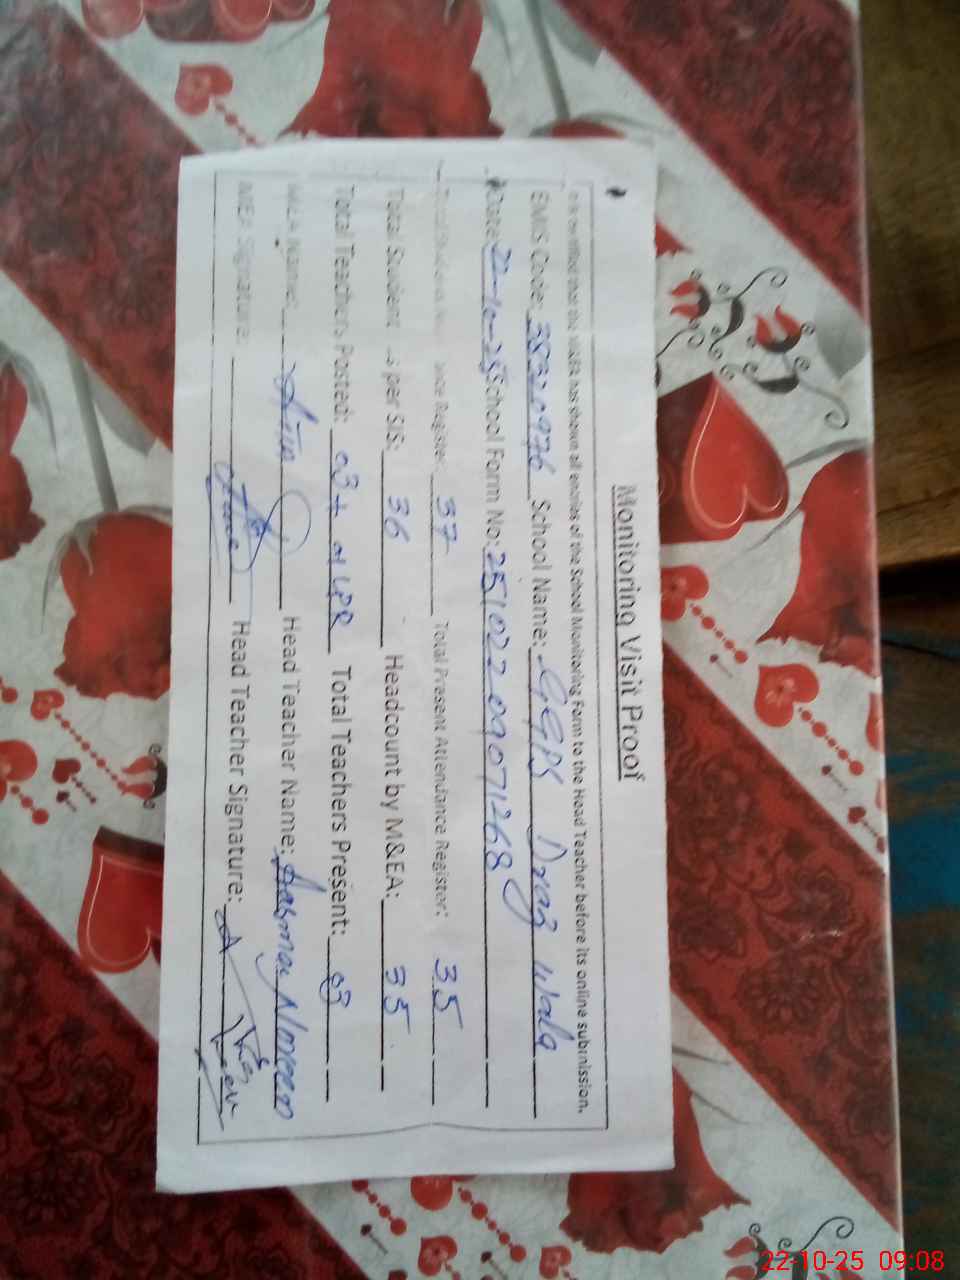 Monitoring Visit Proof
It is certified that the M&EA has shown all entries of the School Monitoring Form to the Head Teacher before its online submission.
EMIS Code: 38320976 School Name: GGPS Draz Wala
Date: 22-10-25 School Form No: 25102209071268
Register: 37 Total Present Attendance Register: 35
Total Student as per SIS: 36 Headcount by M&EA: 35
Total Teachers Posted: 03+ 01 LPR Total Teachers Present: 03
MEA Name: Head Teacher Name: Aasma Noreen
MEA Signature: Head Teacher Signature:
22-10-25 09:08